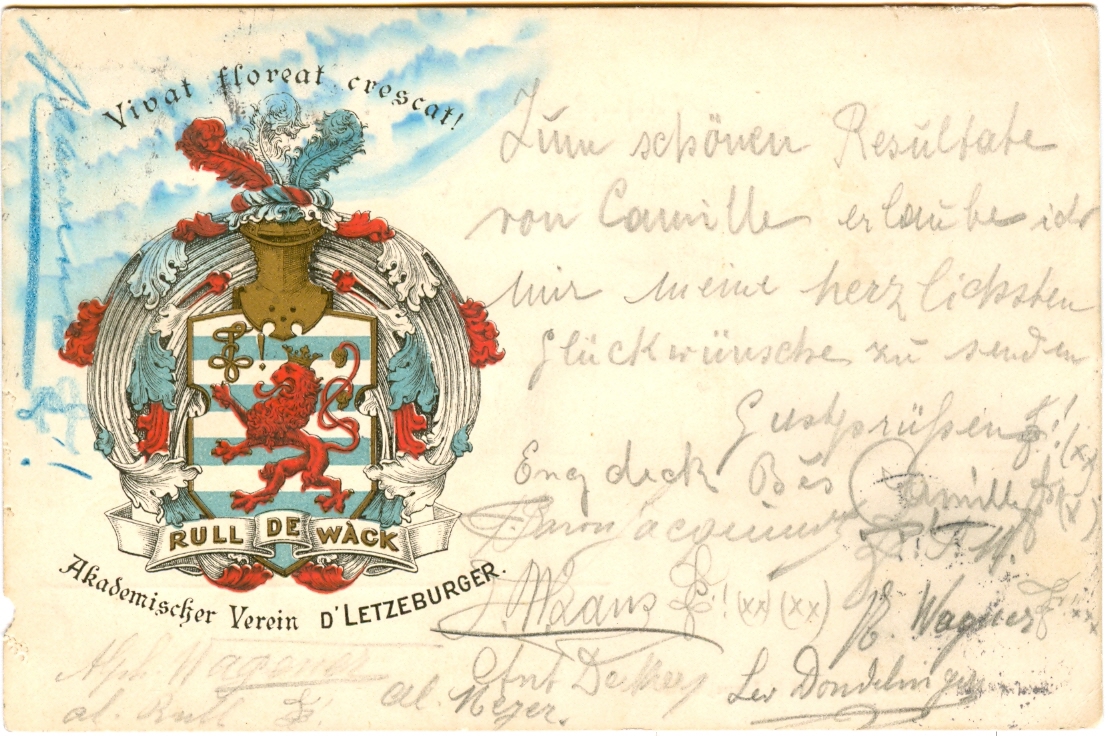 Vivat floreat crescat!
RULL DE WÀCK
Akademischer Verein D'LETZEBURGER.
Zum schönen Resultate
von Camille erlaube ich
mir meine herzlichsten
Glückwünsche zu senden
Gust Prüßen ! (xx)
Eng deck Bës Camille (x)
Baron
! (xx) (xx) P. Wagner xx
Alph. Wagener Ant Decker Leo Dondelinger
al. Rull al. Neger.